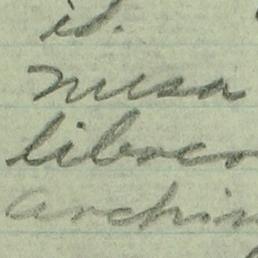 id.
mesa
libros
archiv